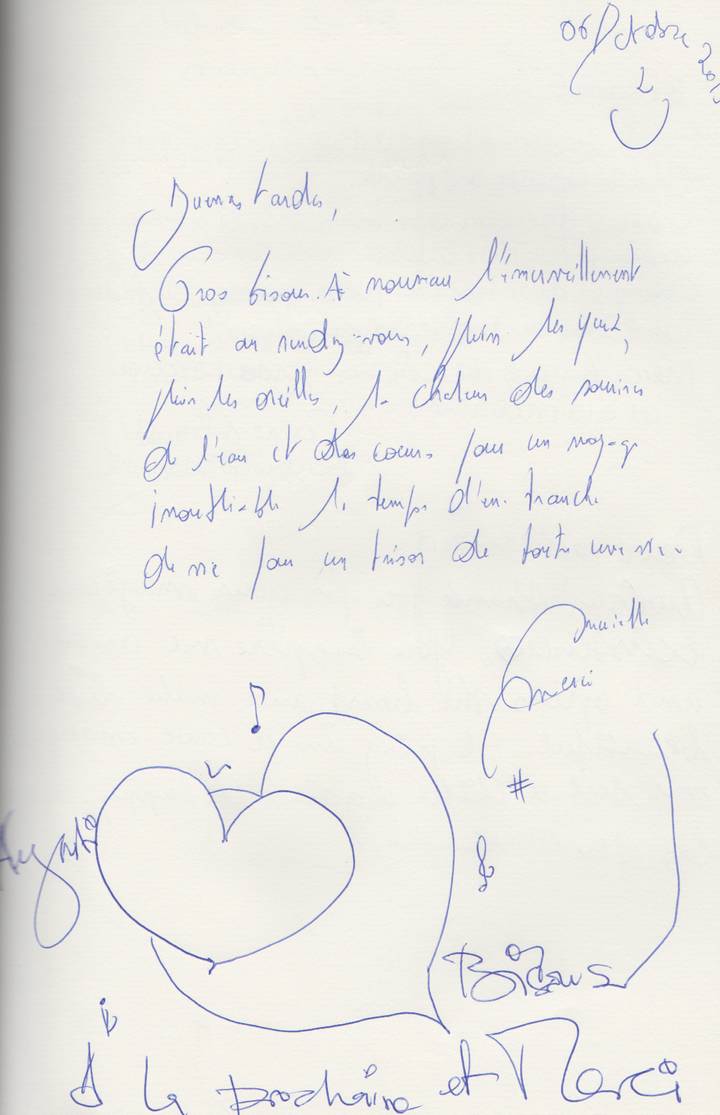 06 Octobre
Buenas tardes,
Gros bisous. À nouveau l'émerveillement
était au rendez-vous, plein les yeux,
plein les oreilles, la chaleur des sourires
de l'eau et des coeurs pour un voyage
inoubliable le temps d'une tranche
de vie pour un trésor de toute une vie.
Murielle
Merci
#
Bisous
A la prochaine et Merci